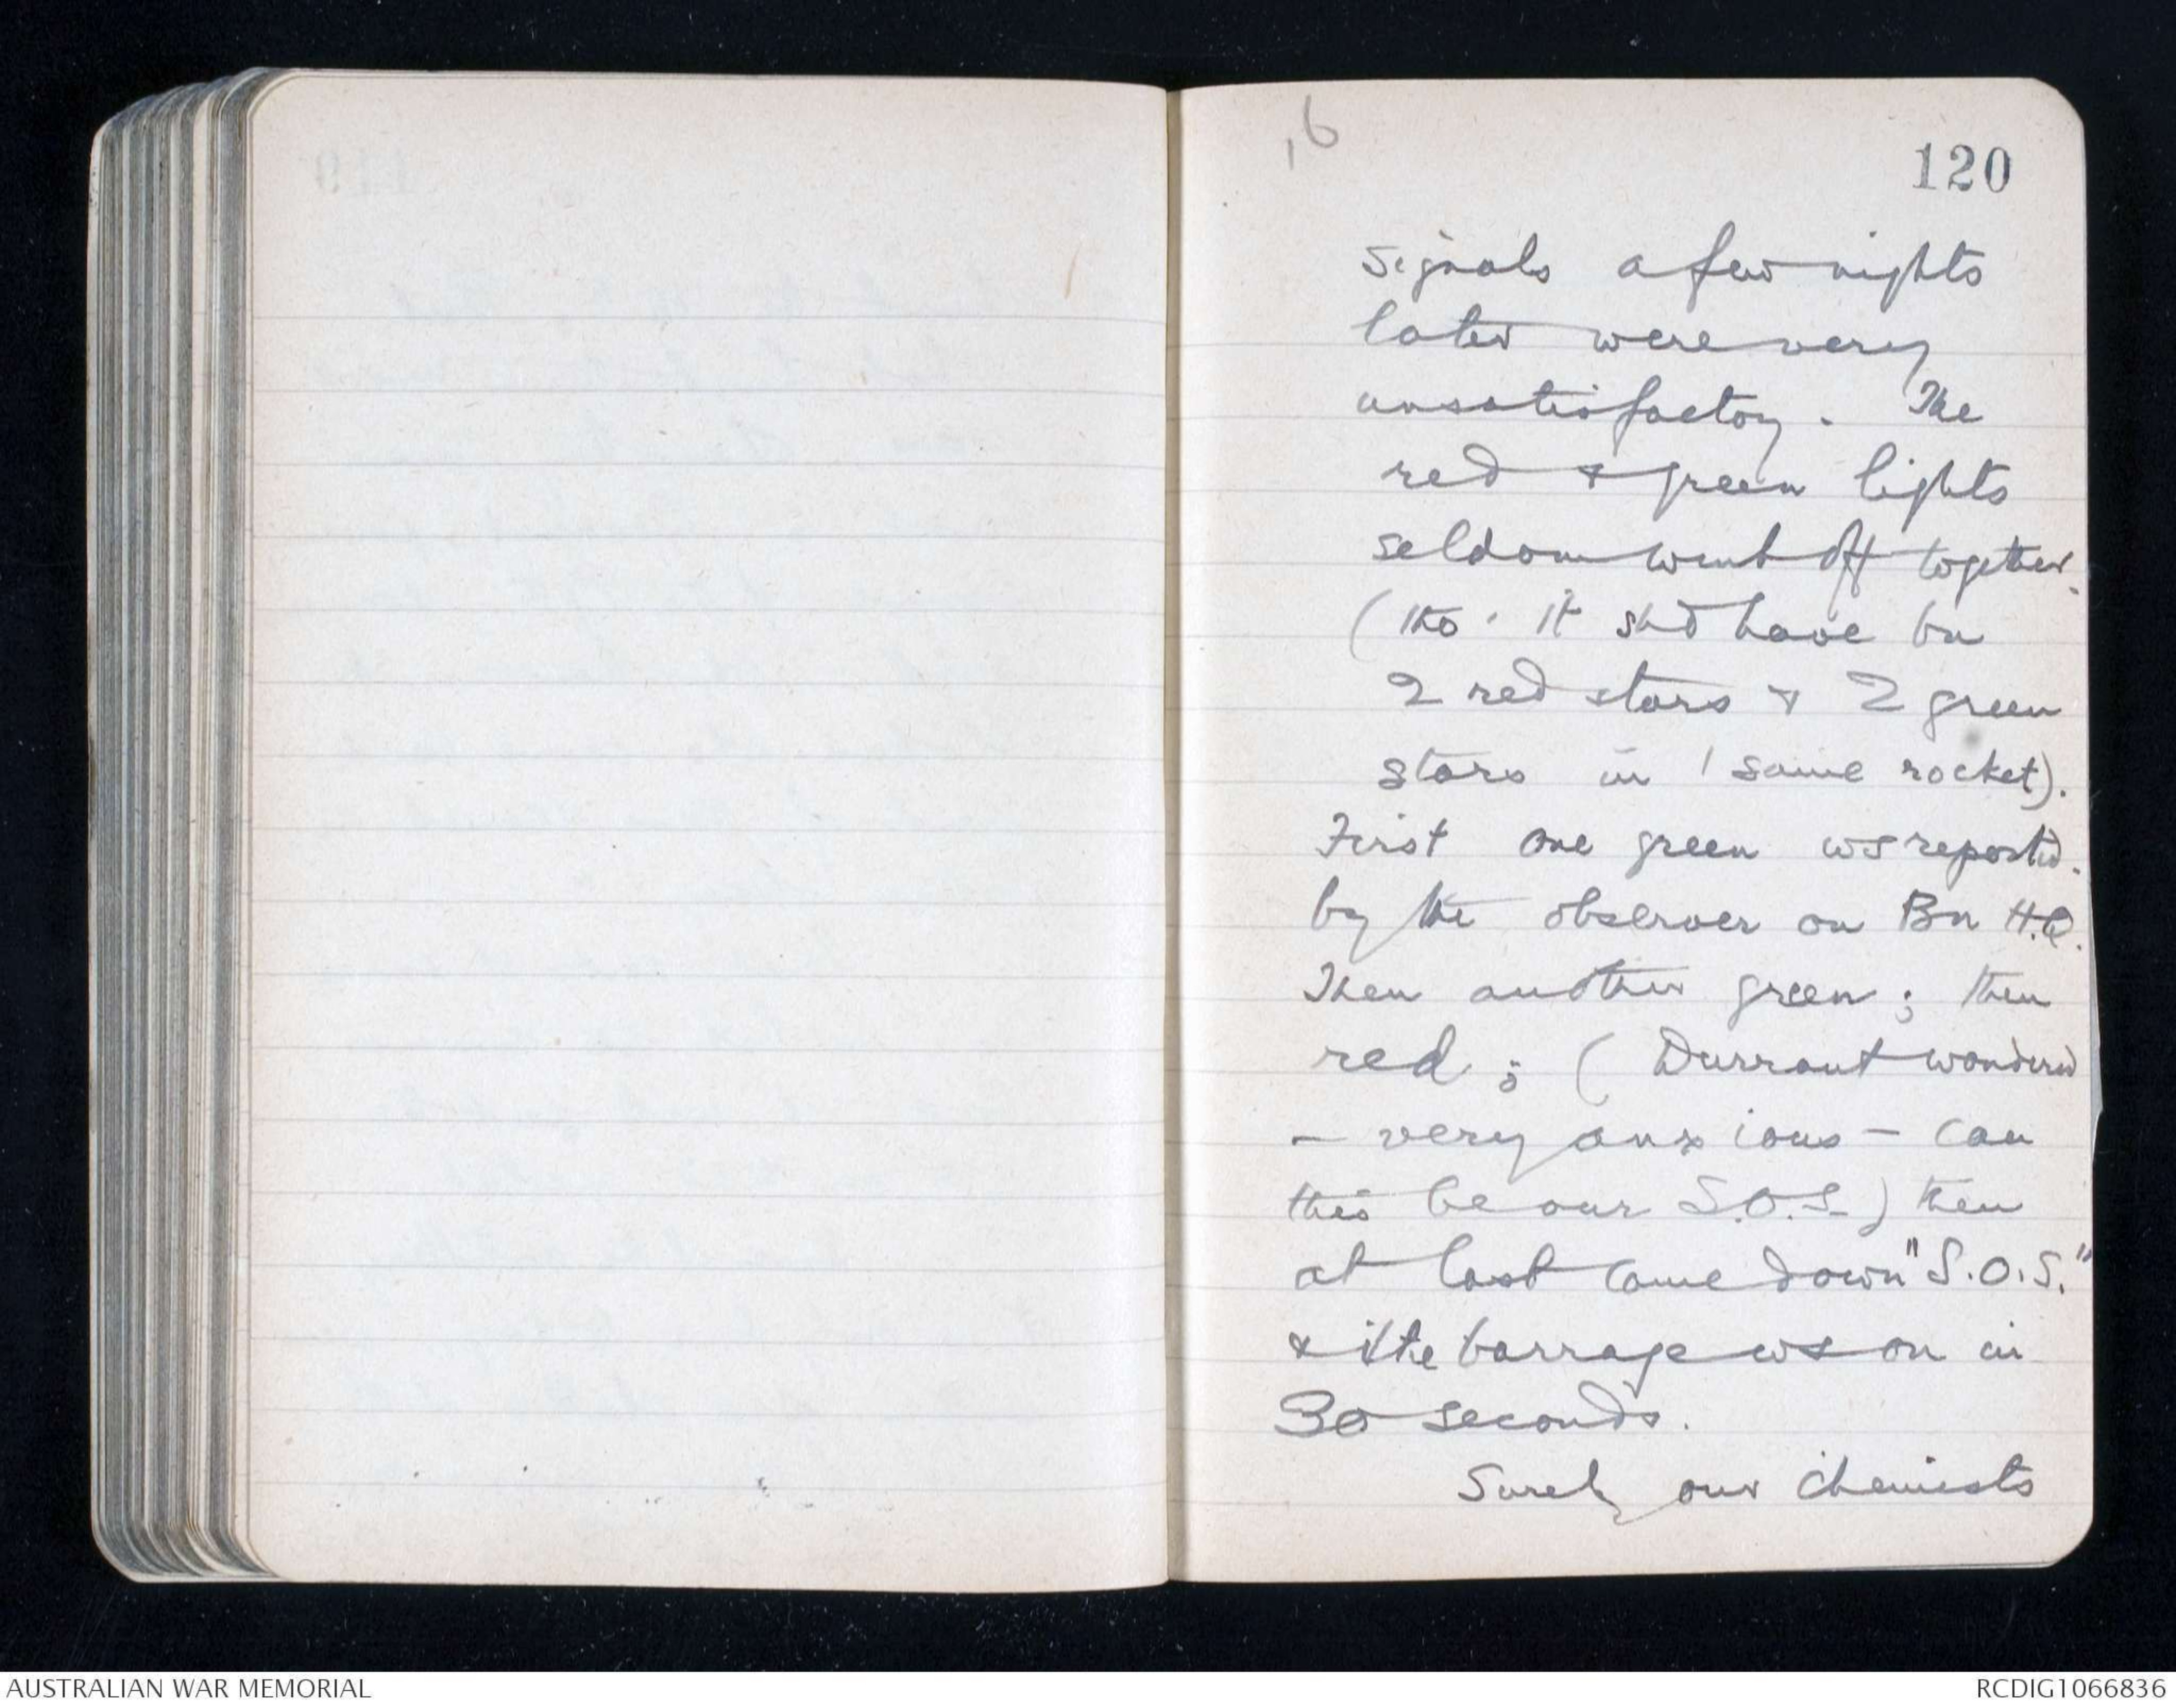 16
120
signals a few nights
later were very
unsatisfactory. The
red & green lights
seldom went off together.
(tho' it shd have bn
2 red stars & 2 green
stars in / same rocket).
First one green ws reported.
by the observer on Bn H.Q.
Then another green; then
red; (Durrant wondered
- very anxious - can
this be our S.O.S.) then
at last came down "S.O.S."
& the barrage ws on in
30 seconds.
Surely our chemists
AUSTRALIAN WAR MEMORIAL
RCDIG1066836